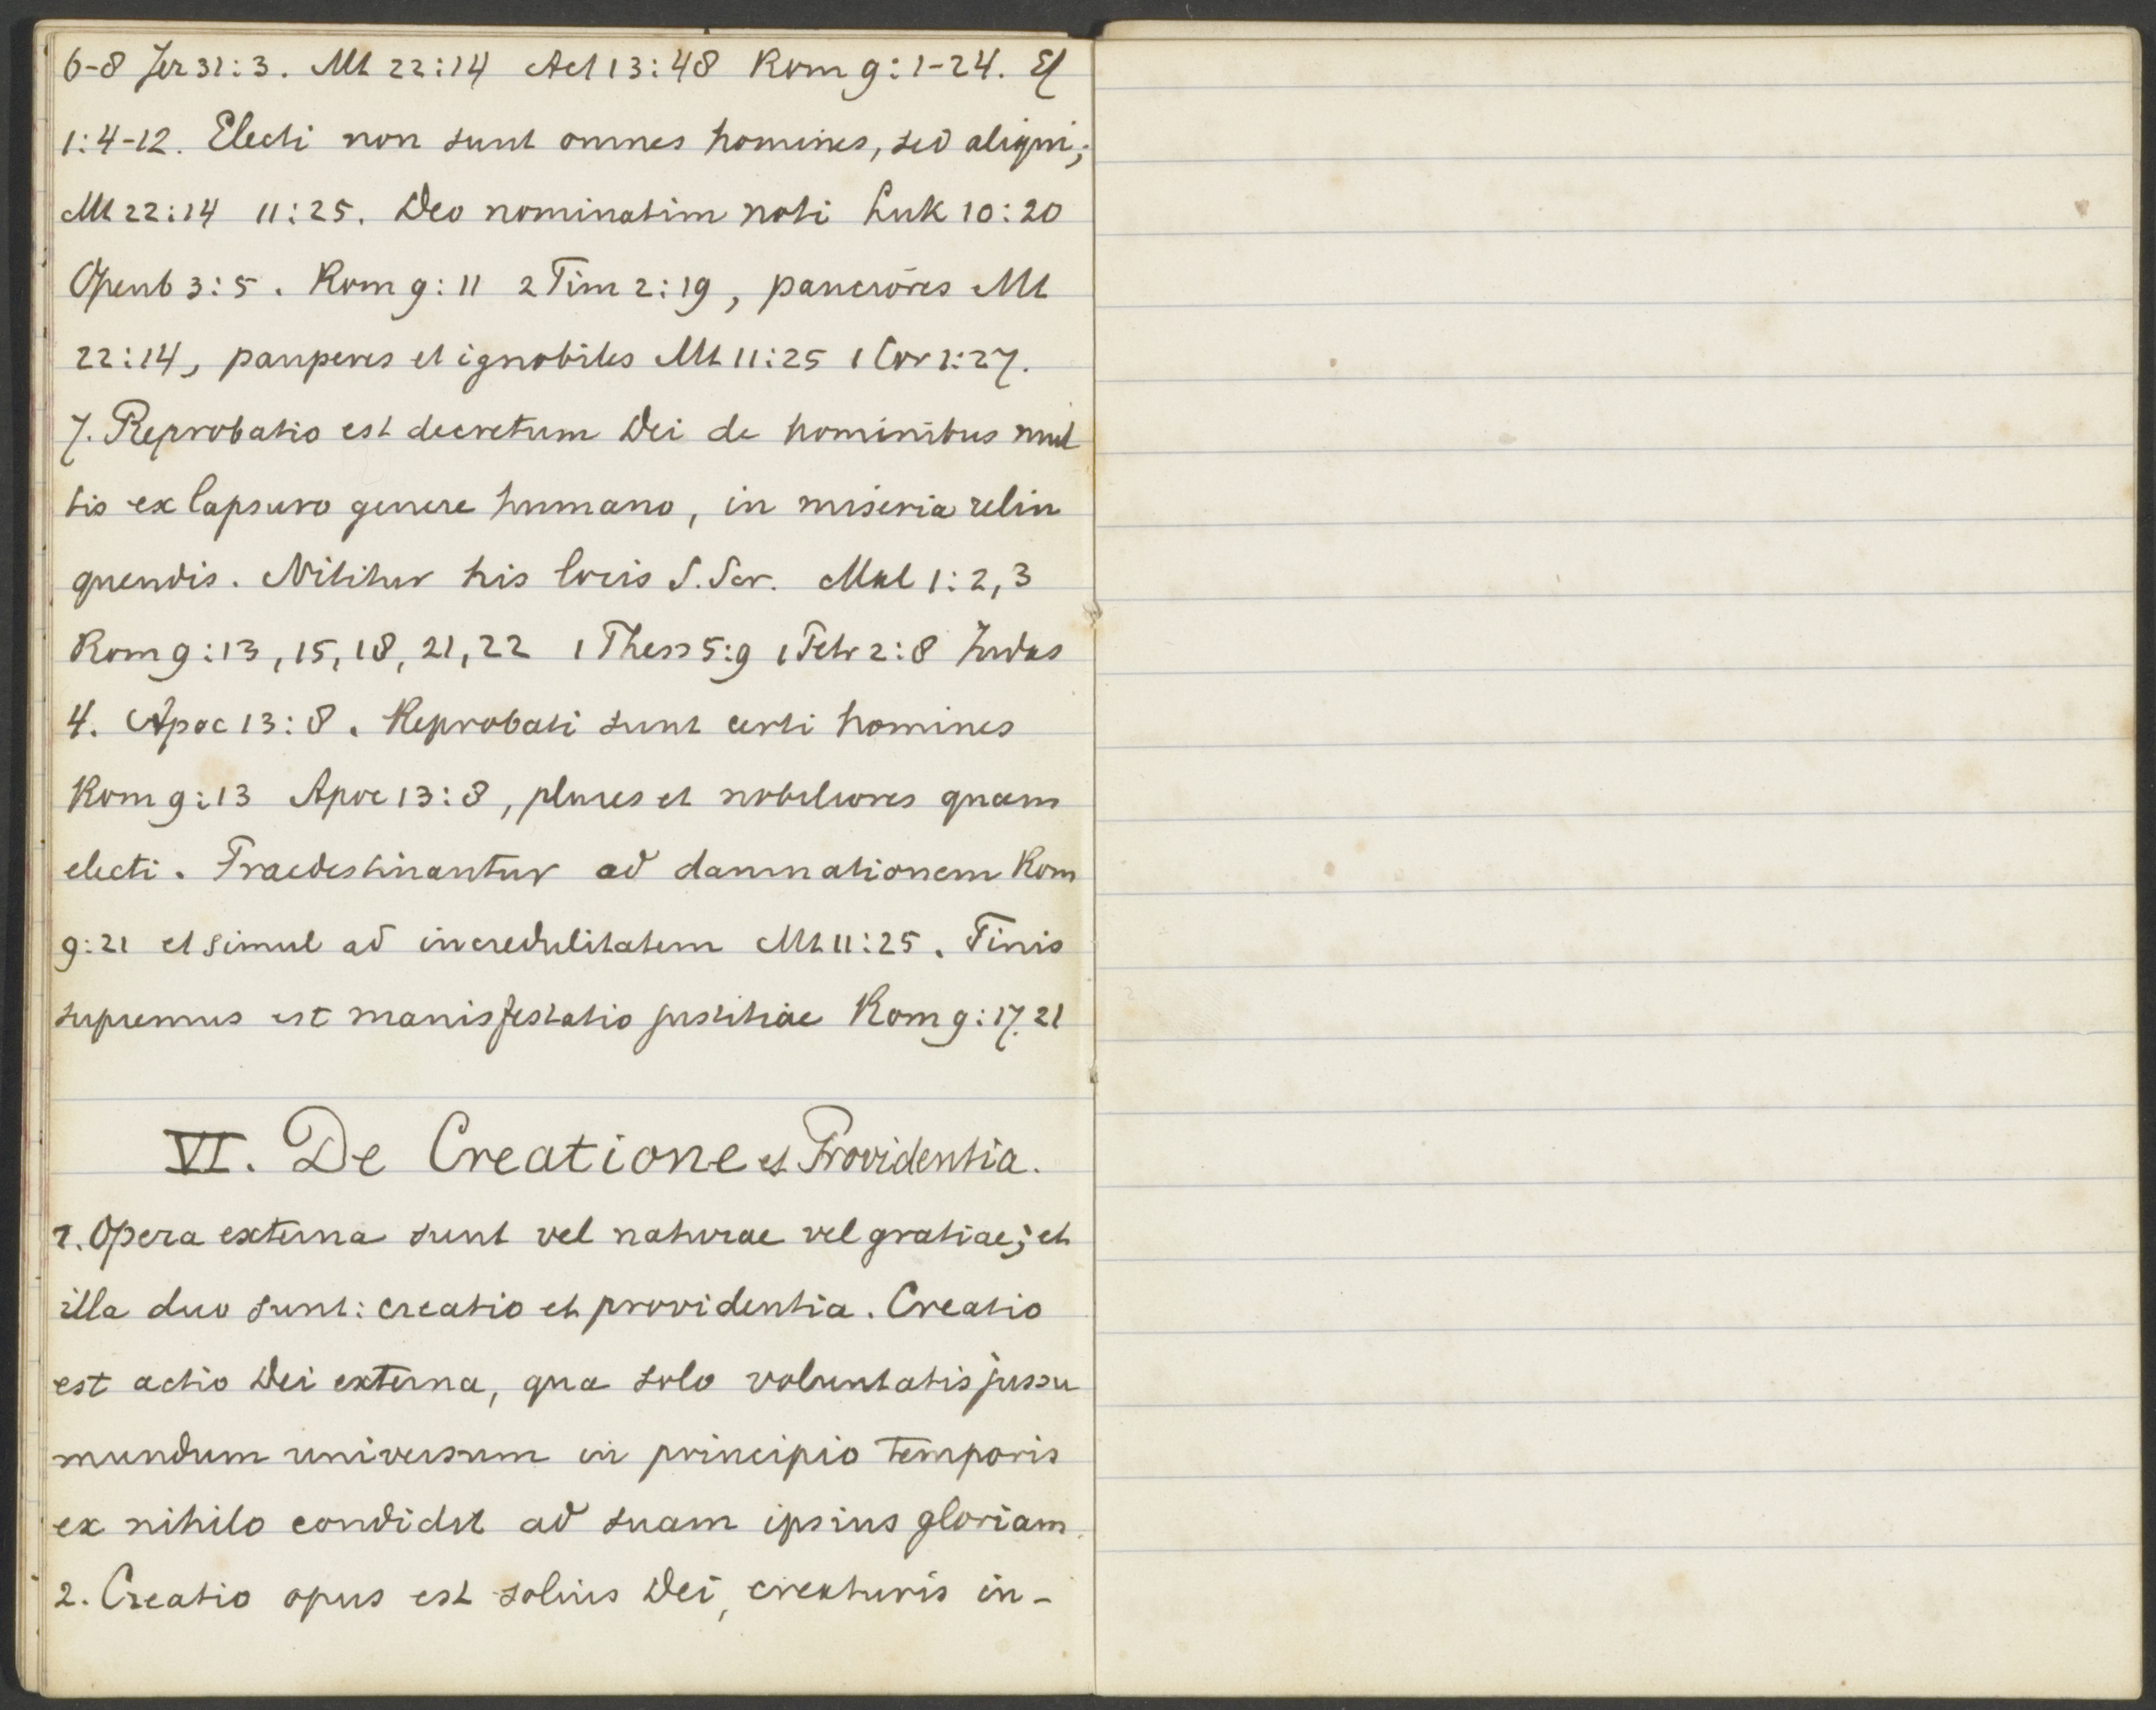 6-8 Jer 31:3. Mt 22:14 Act 13:48 Rom 9:1-24. Ef
1:4-12. Electi non sunt omnes homines, sed aliqui;
Mt 22:14 11:25. Deo nominatim noti Luk 10:20
Openb 3:5. Rom 9:11 2 Tim 2:19, pauciores Mt
22:14, pauperes et ignobiles Mt 11:25 1 Cor 1:27.
7. Reprobatio est decretum Dei de hominibus mul
tis ex lapsuro genere humano, in miseria relin
quendis. Nititur his locis S. Scr. Mal 1:2,3
Rom 9:13, 15, 18, 21, 22 1 Thess 5:9 1 Petr 2:8 Judas
4. Apoc 13:8. Reprobati sunt certi homines
Rom 9:13 Apoc 13:8, plures et nobiliores quam
electi. Praedestinantur ad damnationem Rom
9:21 et simul ad incredulitatem Mt 11:25. Finis
supremus est manisfestatio justitiae Rom 9:17.21
VI. De Creatione et Providentia.
1. Opera externa sunt vel naturae vel gratiae; et
illa duo sunt: creatio et providentia. Creatio
est actio Dei externa, qua solo voluntatis jussu
mundum universum in principio temporis
ex nihilo condidit ad suam ipsius gloriam.
2. Creatio opus est solius Dei, creaturis in-